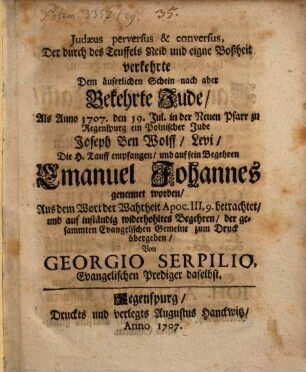 35.
Judæus perversus & conversus,
Der durch des Teuffels Neid und eigne Boßheit
verkehrte
Dem äuserlichen Schein nach aber
Bekehrte Jude/
Als Anno 1707. den 19. Jul. in der Neuen Pfarr zu
Regenspurg ein Polnischer Jude
Joseph Ben Wolff/ Levi/
Die H. Tauff empfangen/ und auf sein Begehren
Emanuel Johannes
genennet worden/
Aus dem Wort der Wahrheit Apoc. III, 9. betrachtet/
und auf inständig widerhohltes Begehren/ der ge-
sammten Evangelischen Gemeine zum Druck
übergeben/
Von
GEORGIO SERPILIO,
Evangelischen Prediger daselbst.
Regenspurg/
Druckts und verlegts Augustus Hanckwitz/
Anno 1707.